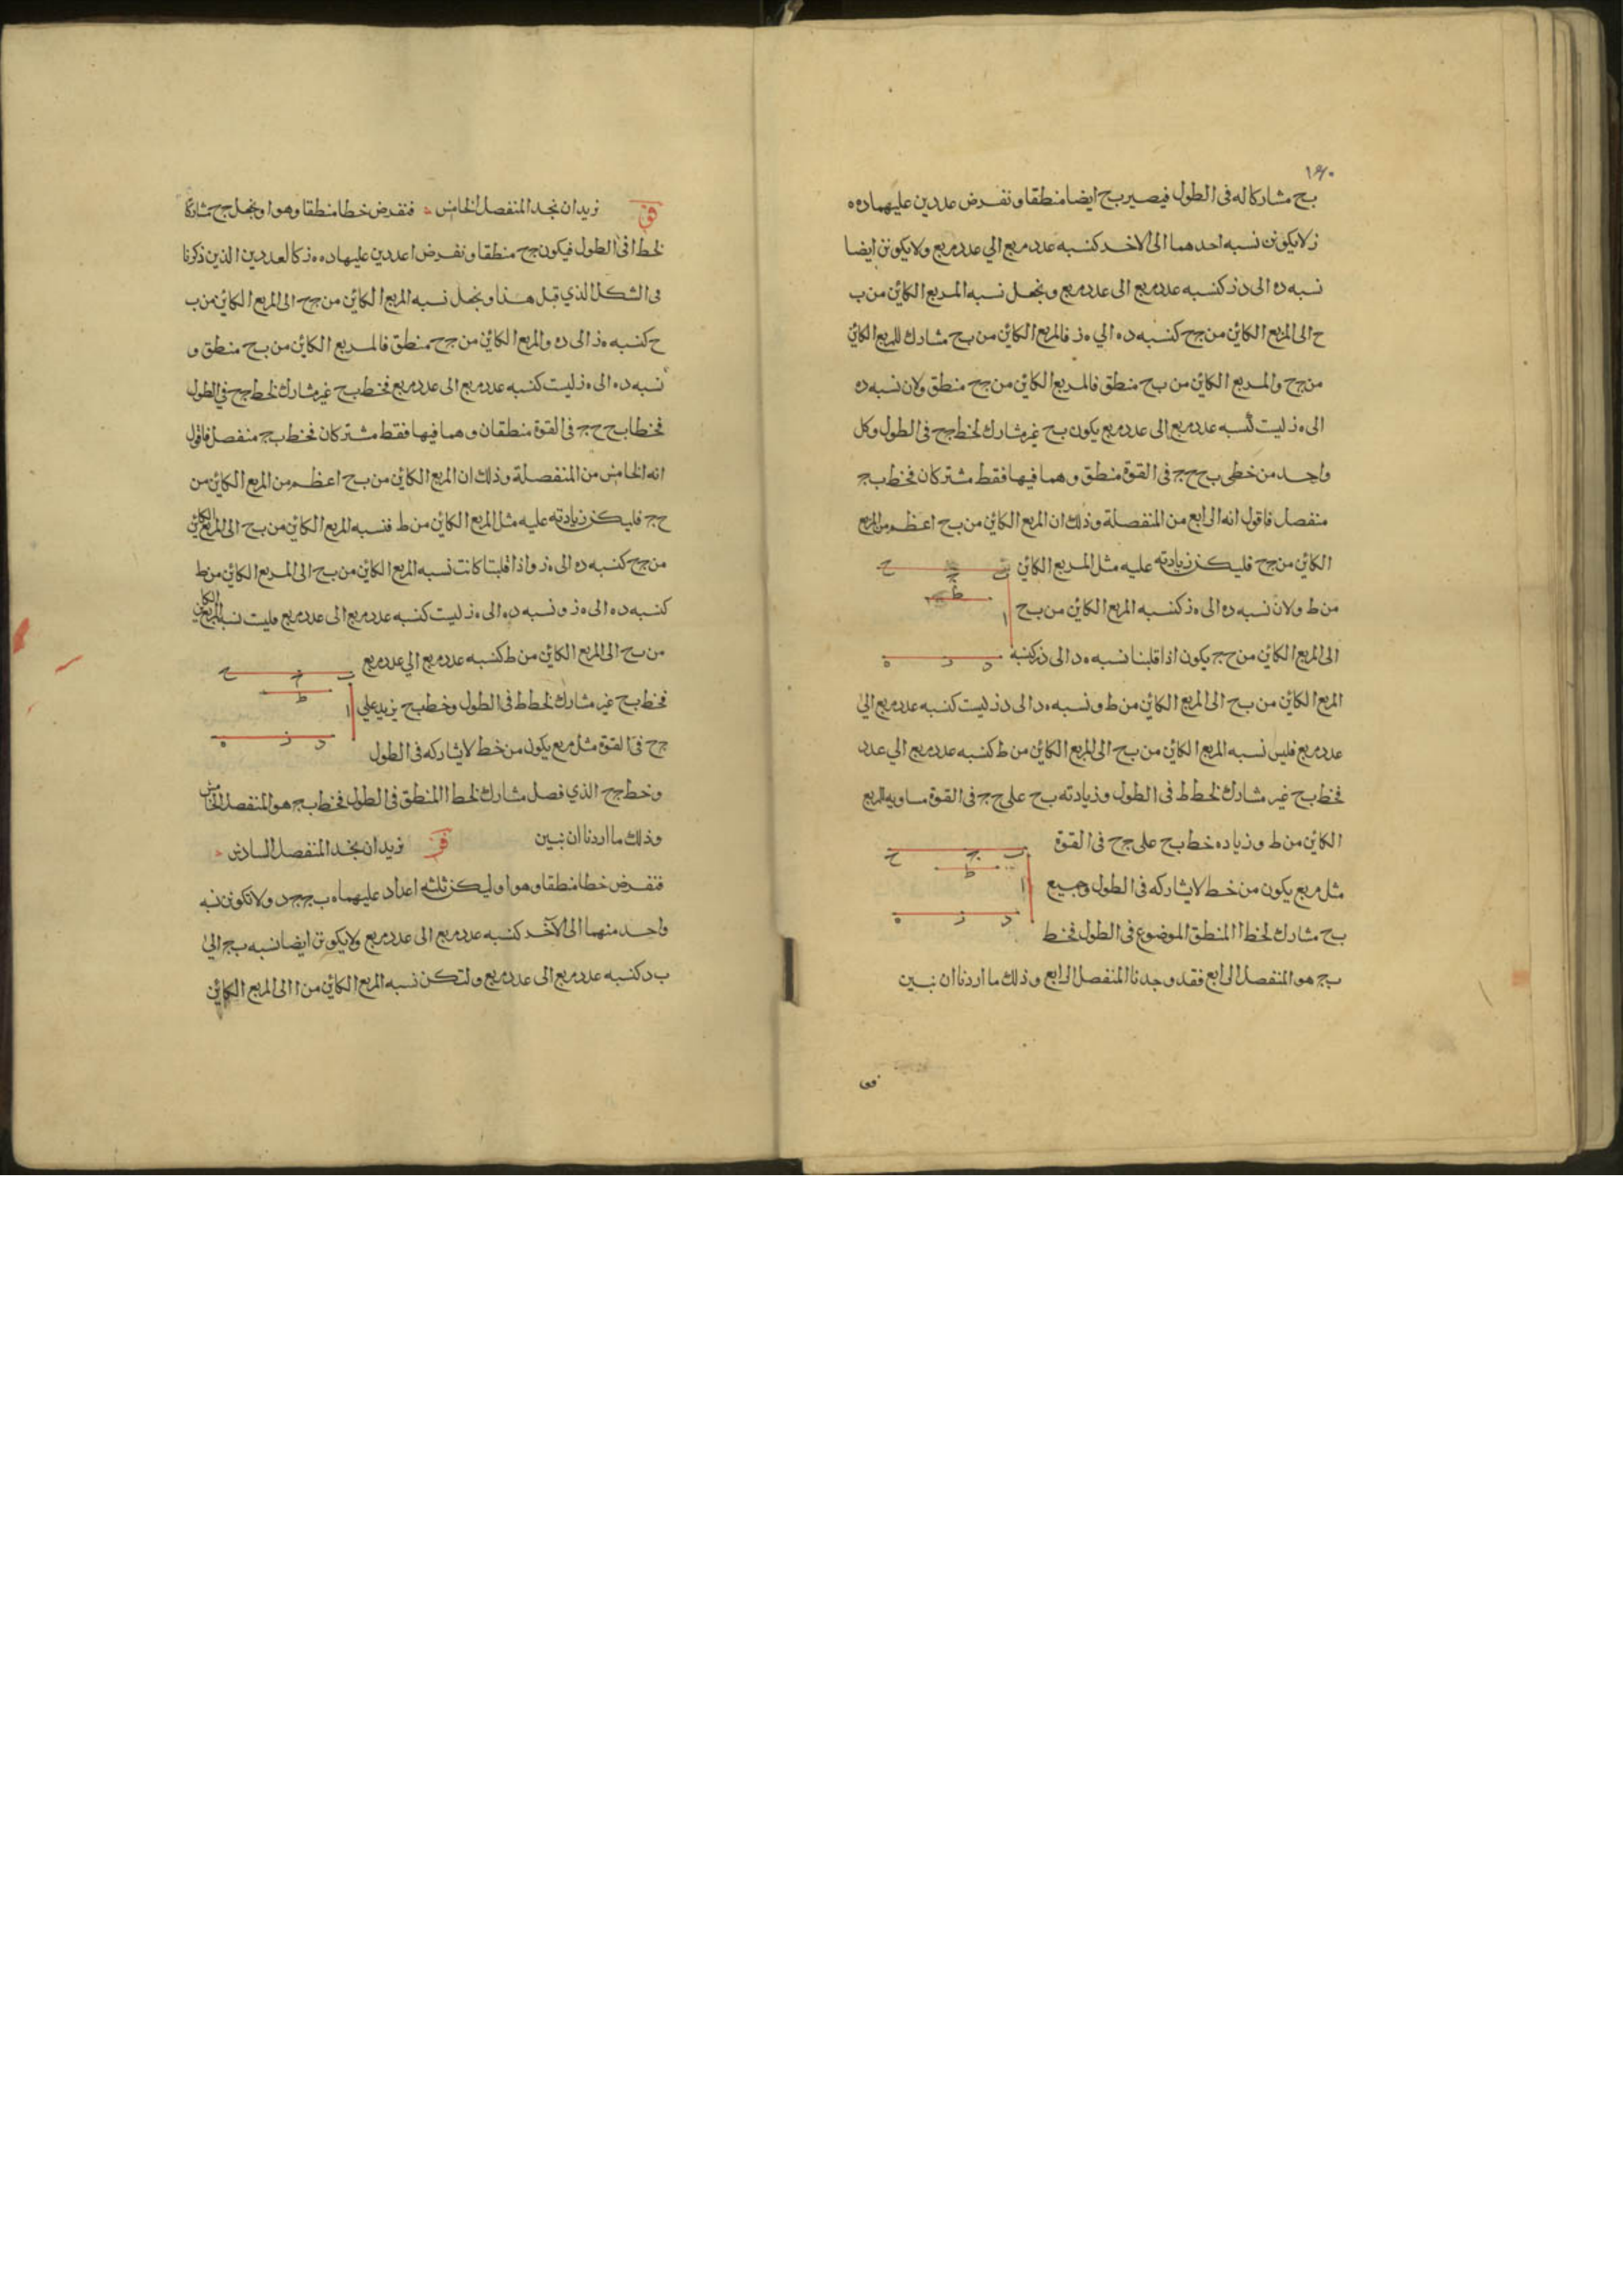 ١٦٠
بح مشاركا له فى الطول فيصير بح ايضا منطقا ونفرض عددين عليهما ده ه
ز لا يكونن نسبه احدهما الى الاخر كنسبه عدد مربع الي عدد مربع ولا يكونن ايضا
نسبه ده الى دز كنسبه عدد مربع الى عدد مربع ونجعل نسبه المربع الكائن من ب
ح الى المربع الكائن من جح كنسبه ده الي ه ز فالمربع الكائن من بح مشارك للمربع الكائن
من جح والمربع الكائن من بح منطق فالمربع الكائن من جح منطق ولان نسبه ده
الى ه ز ليست كنسبه عدد مربع الى عدد مربع يكون بح غير مشارك لخط جح فى الطول وكل
واحد من خطى بح حج فى القوة منطق وهما فيها فقط مشتركان فخط بج
منفصل فاقول انه الرابع من المنفصلة وذلك ان المربع الكائن من بح اعظم من المربع
الكائن من جح فليكن زيادته عليه مثل المربع الكائن
ب ج ح
ط
ا
من ط ولان نسبه ده الى ه ز كنسبه المربع الكائن من بح
الى المربع الكائن من حج يكون اذا قلبنا نسبه ه د الى دز كنسبه
د ز ه
المربع الكائن من بح الى المربع الكائن من ط ونسبه ه د الى دز ليست كنسبه عدد مربع الي
عدد مربع فليس نسبه المربع الكائن من بح الى المربع الكائن من ط كنسبه عدد مربع الي عدد
فخط بح غير مشارك لخط ط فى الطول وزيادته بح على حج فى القوة مساويه للمربع
الكائن من ط وزياده خط بح على جح فى القوة
ب ج ح
ط
ا
مثل مربع يكون من خط لا يشاركه فى الطول وجميع
د ز ه
بح مشارك لخط ا المنطق الموضوع فى الطول فخط
بج هو المنفصل الرابع فقد وجدنا المنفصل الرابع وذلك ما اردنا ان نبين
نريد ان نجد المنفصل الخامس فنفرض خطا منطقا وهو ا ونجعل جح مشاركا
لخط ا فى الطول فيكون جح منطقا ونفرض اعددين عليها ده ه ز كالعددين الذين ذكرنا
فى الشكل الذي قبل هذا ونجعل نسبه المربع الكائن من جح الى المربع الكائن من ب
ح كنسبه ه ز الى ده والمربع الكائن من جح منطق فالمربع الكائن من بح منطق و
نسبه ده الى ه ز ليست كنسبه عدد مربع الى عدد مربع فخط بح غير مشارك لخط جح في الطول
فخطا بح حج فى القوة منطقان وهما فيها فقط مشتركان فخط بج منفصل فاقول
انه الخامس من المنفصلة وذلك ان المربع الكائن من بح اعظم من المربع الكائن من
حج فليكن زيادته عليه مثل المربع الكائن من ط فنسبه المربع الكائن من بح الى المربع الكائن
من جح كنسبه ده الى ه ز واذا قلبنا كانت نسبه المربع الكائن من بح الى المربع الكائن من ط
كنسبه ده الى ه ز ونسبه ده الى ه ز ليست كنسبه عدد مربع الى عدد مربع فليست نسبه المربع الكائن
من بح الى المربع الكائن من ط كنسبه عدد مربع الي عدد مربع
ب ج ح
ط
ا
فخط بح غير مشارك لخط ط فى الطول وخط بح يزيد علي
د ز ه
جح فى القوة مثل مربع يكون من خط لا يشاركه فى الطول
وخط جح الذي فصل مشارك لخط ا المنطق فى الطول فخط بج هو المنفصل الخامس
وذلك ما اردنا ان نبين قز نريد ان نجد المنفصل السادس
فنفرض خطا منطقا وهو ا وليكن ثلثه اعداد عليهما ه ب ج جد ولا تكونن نسبه
واحد منهما الى الآخر كنسبه عدد مربع الى عدد مربع ولا يكونن ايضا نسبه بج الي
ب د كنسبه عدد مربع الى عدد مربع ولتكن نسبه المربع الكائن من ا الى المربع الكائن